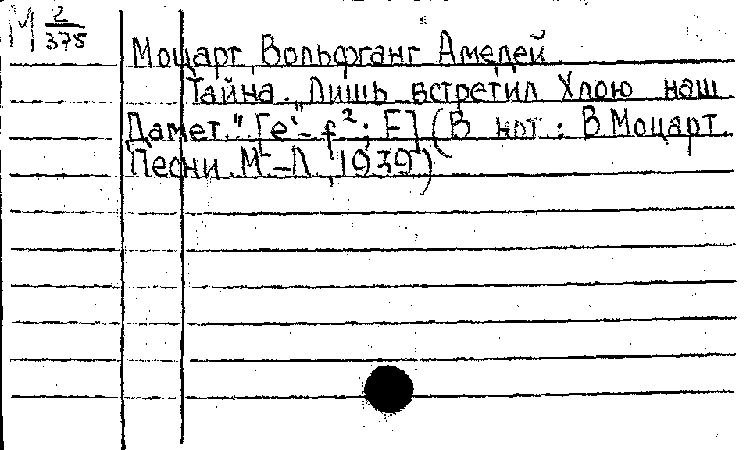 М 2/375
Моцарт, Вольфганг Амедей.
Тайна. "Лишь встретил Хлою наш
Дамет." [e¹–f²; F] (В нот.: В Моцарт.
Песни. М–Л, 1939)